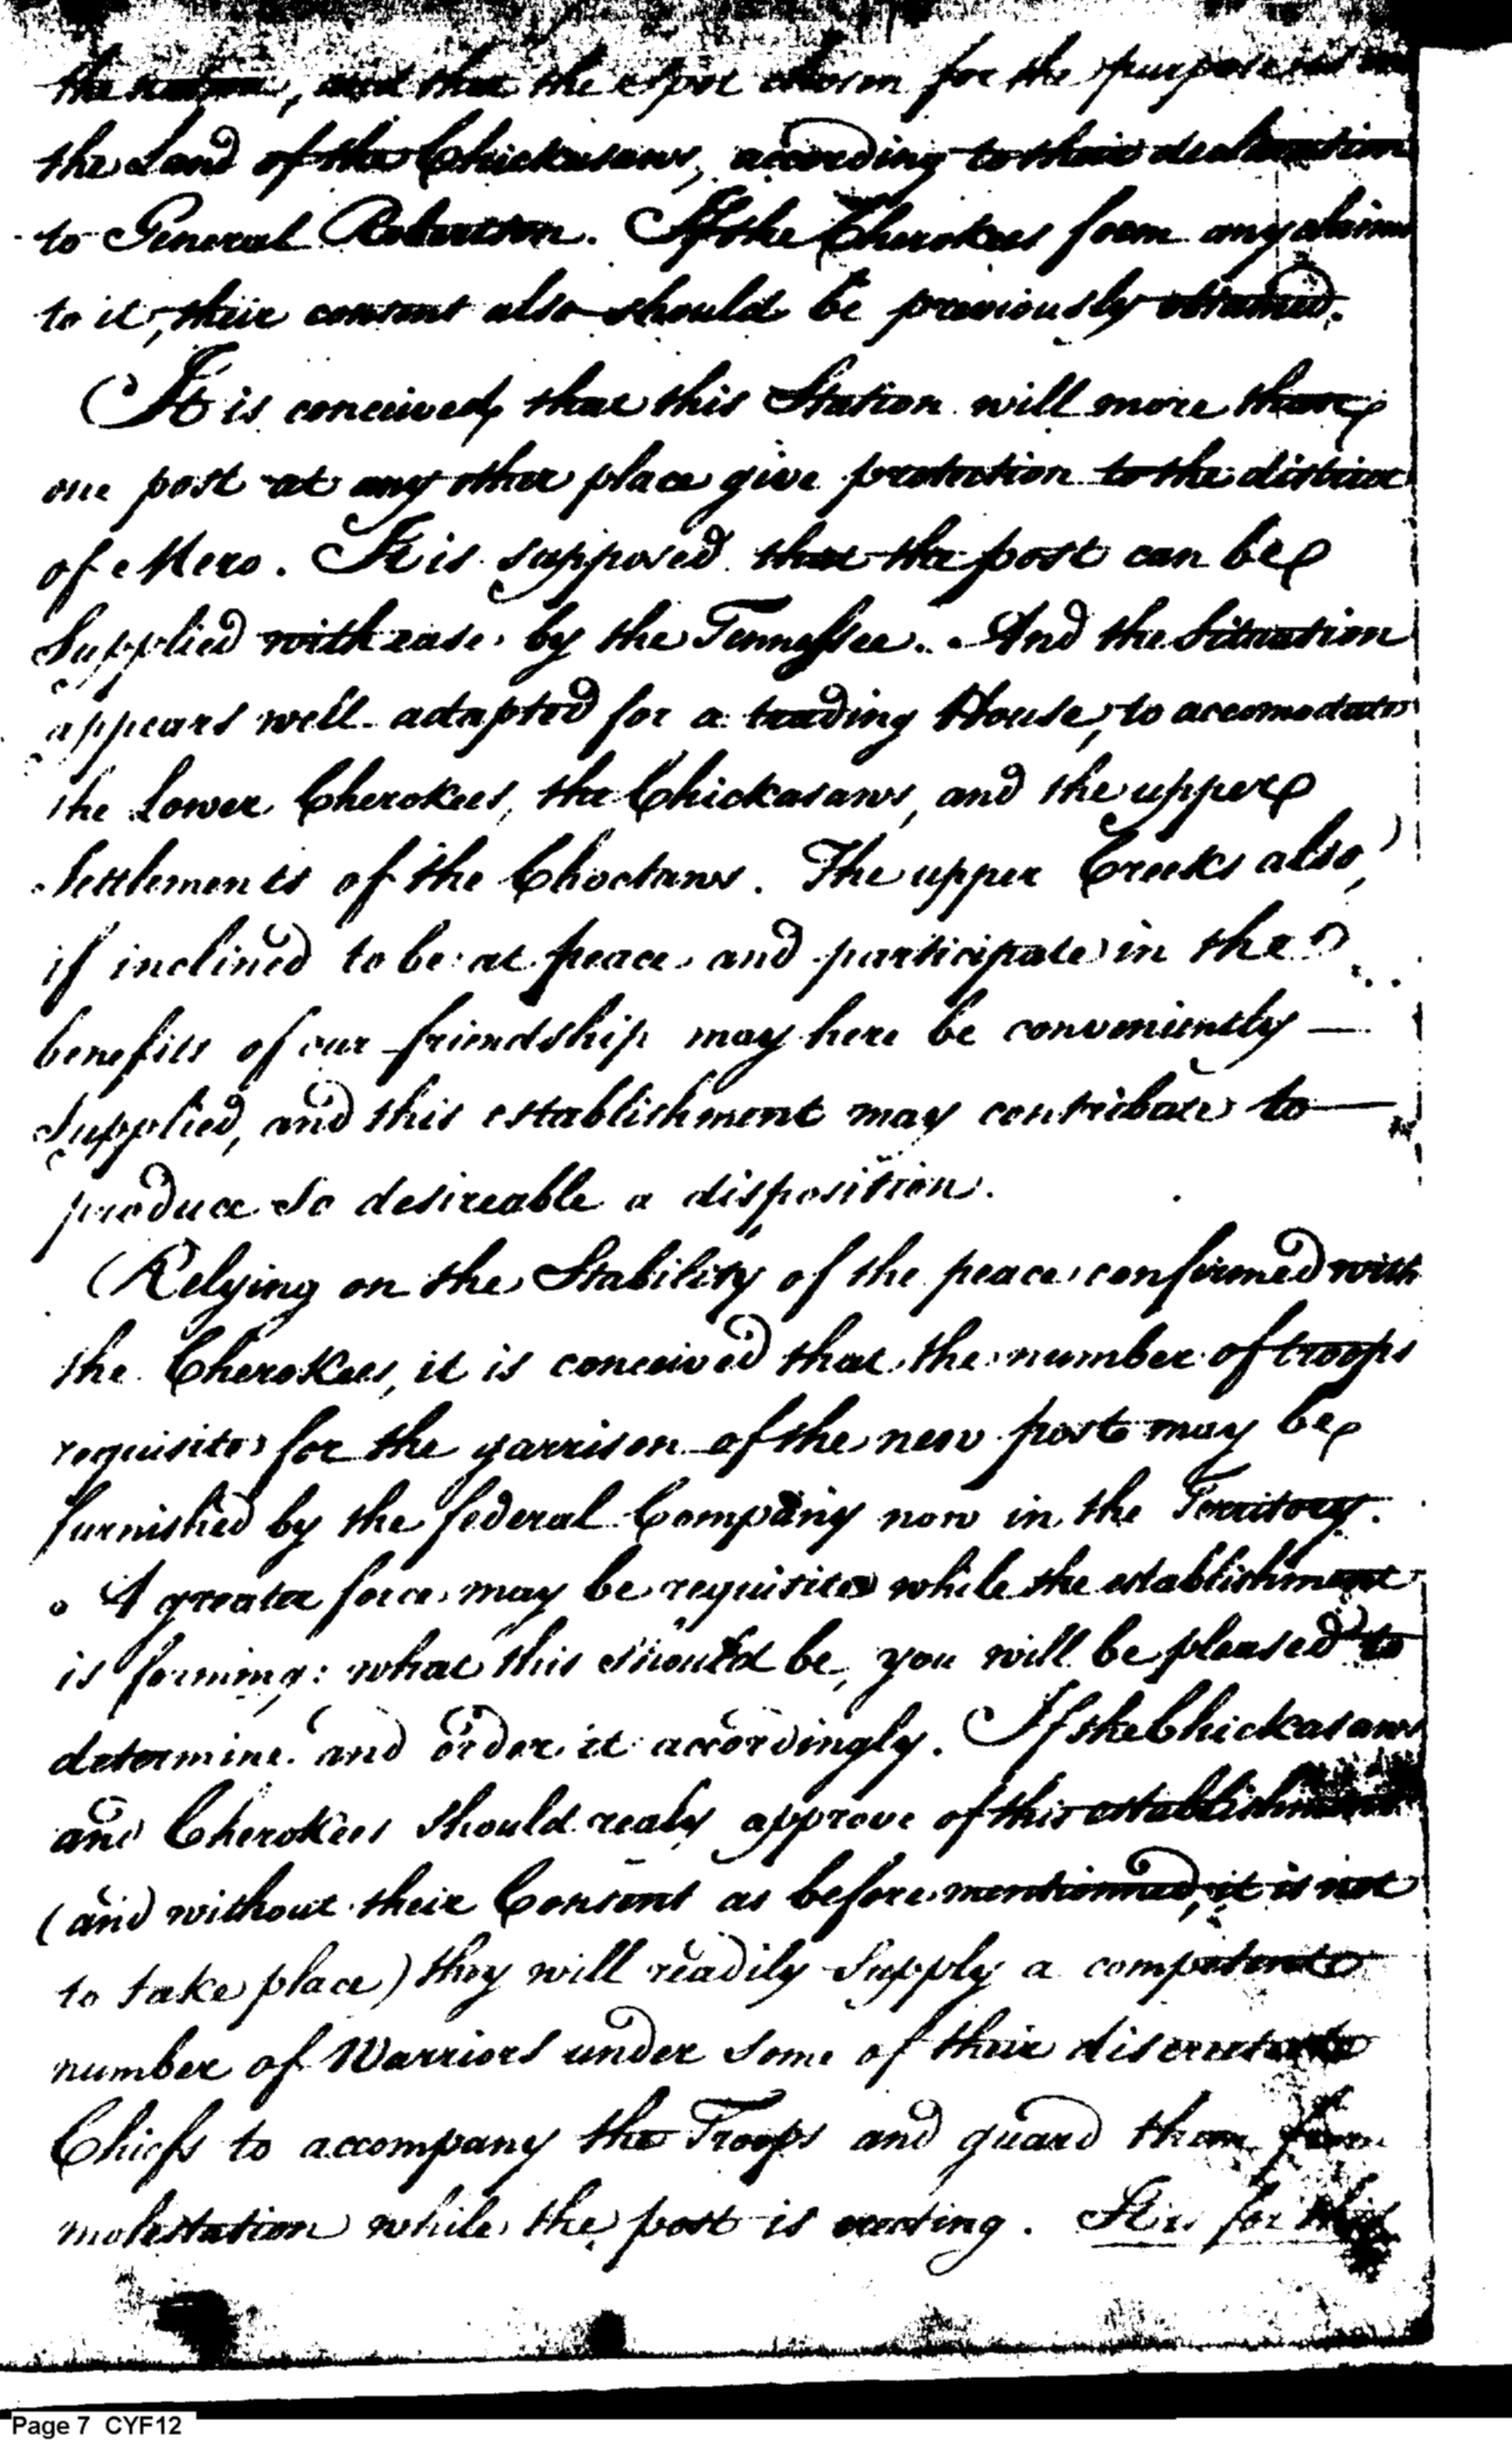 the nation, and that the spot chosen for the purpose is on
the Land of the Chickasaws, according to their declaration
to General Robertson. If the Cherokees form any claim
to it, their consent also should be previously obtained.
It is conceived, that this Station will more than
one post at any other place give protection to the district
of Mero. It is supposed that the post can be
Supplied with ease by the Tennessee. And the Situation
appears well adapted for a trading House, to accomodate
the Lower Cherokees, the Chickasaws, and the upper
Settlements of the Choctaws. The upper Creeks also,
if inclined to be at peace and participate in the
benefits of our friendship may here be conveniently —
Supplied, and this establishment may contribute to —
produce So desireable a disposition.
Relying on the Stability of the peace confirmed with
the Cherokees, it is conceived that the number of troops
requisite for the garrison of the new post may be
furnished by the federal Company now in the Territory.
A greater force may be requisite while the establishment
is forming: what this should be, you will be pleased to
determine and order it accordingly. If the Chickasaws
and Cherokees should realy approve of this establishment
(and without their Consent as before mentioned, it is not
to take place) they will readily Supply a competent
number of Warriors under Some of their discreetest
Chiefs to accompany the Troops and guard them from
molestation while the post is erecting. It is for this
Page 7 CYF12